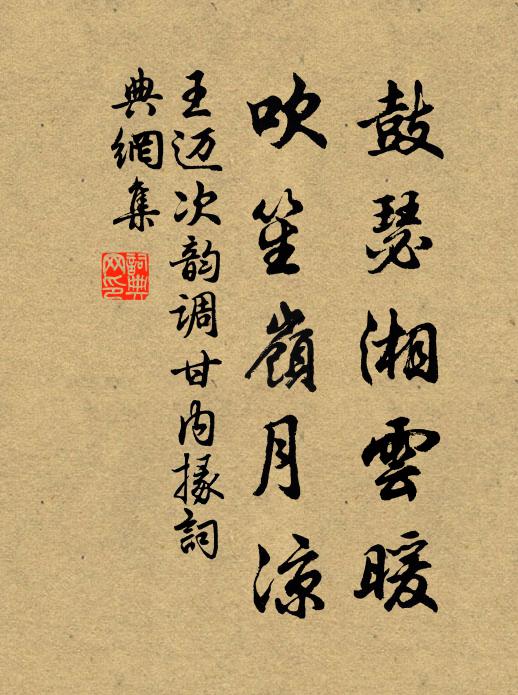 鼓瑟湘雲暖
吹笙嶺月涼
王迈次韵调甘内掾詞
典網集
詞典網印